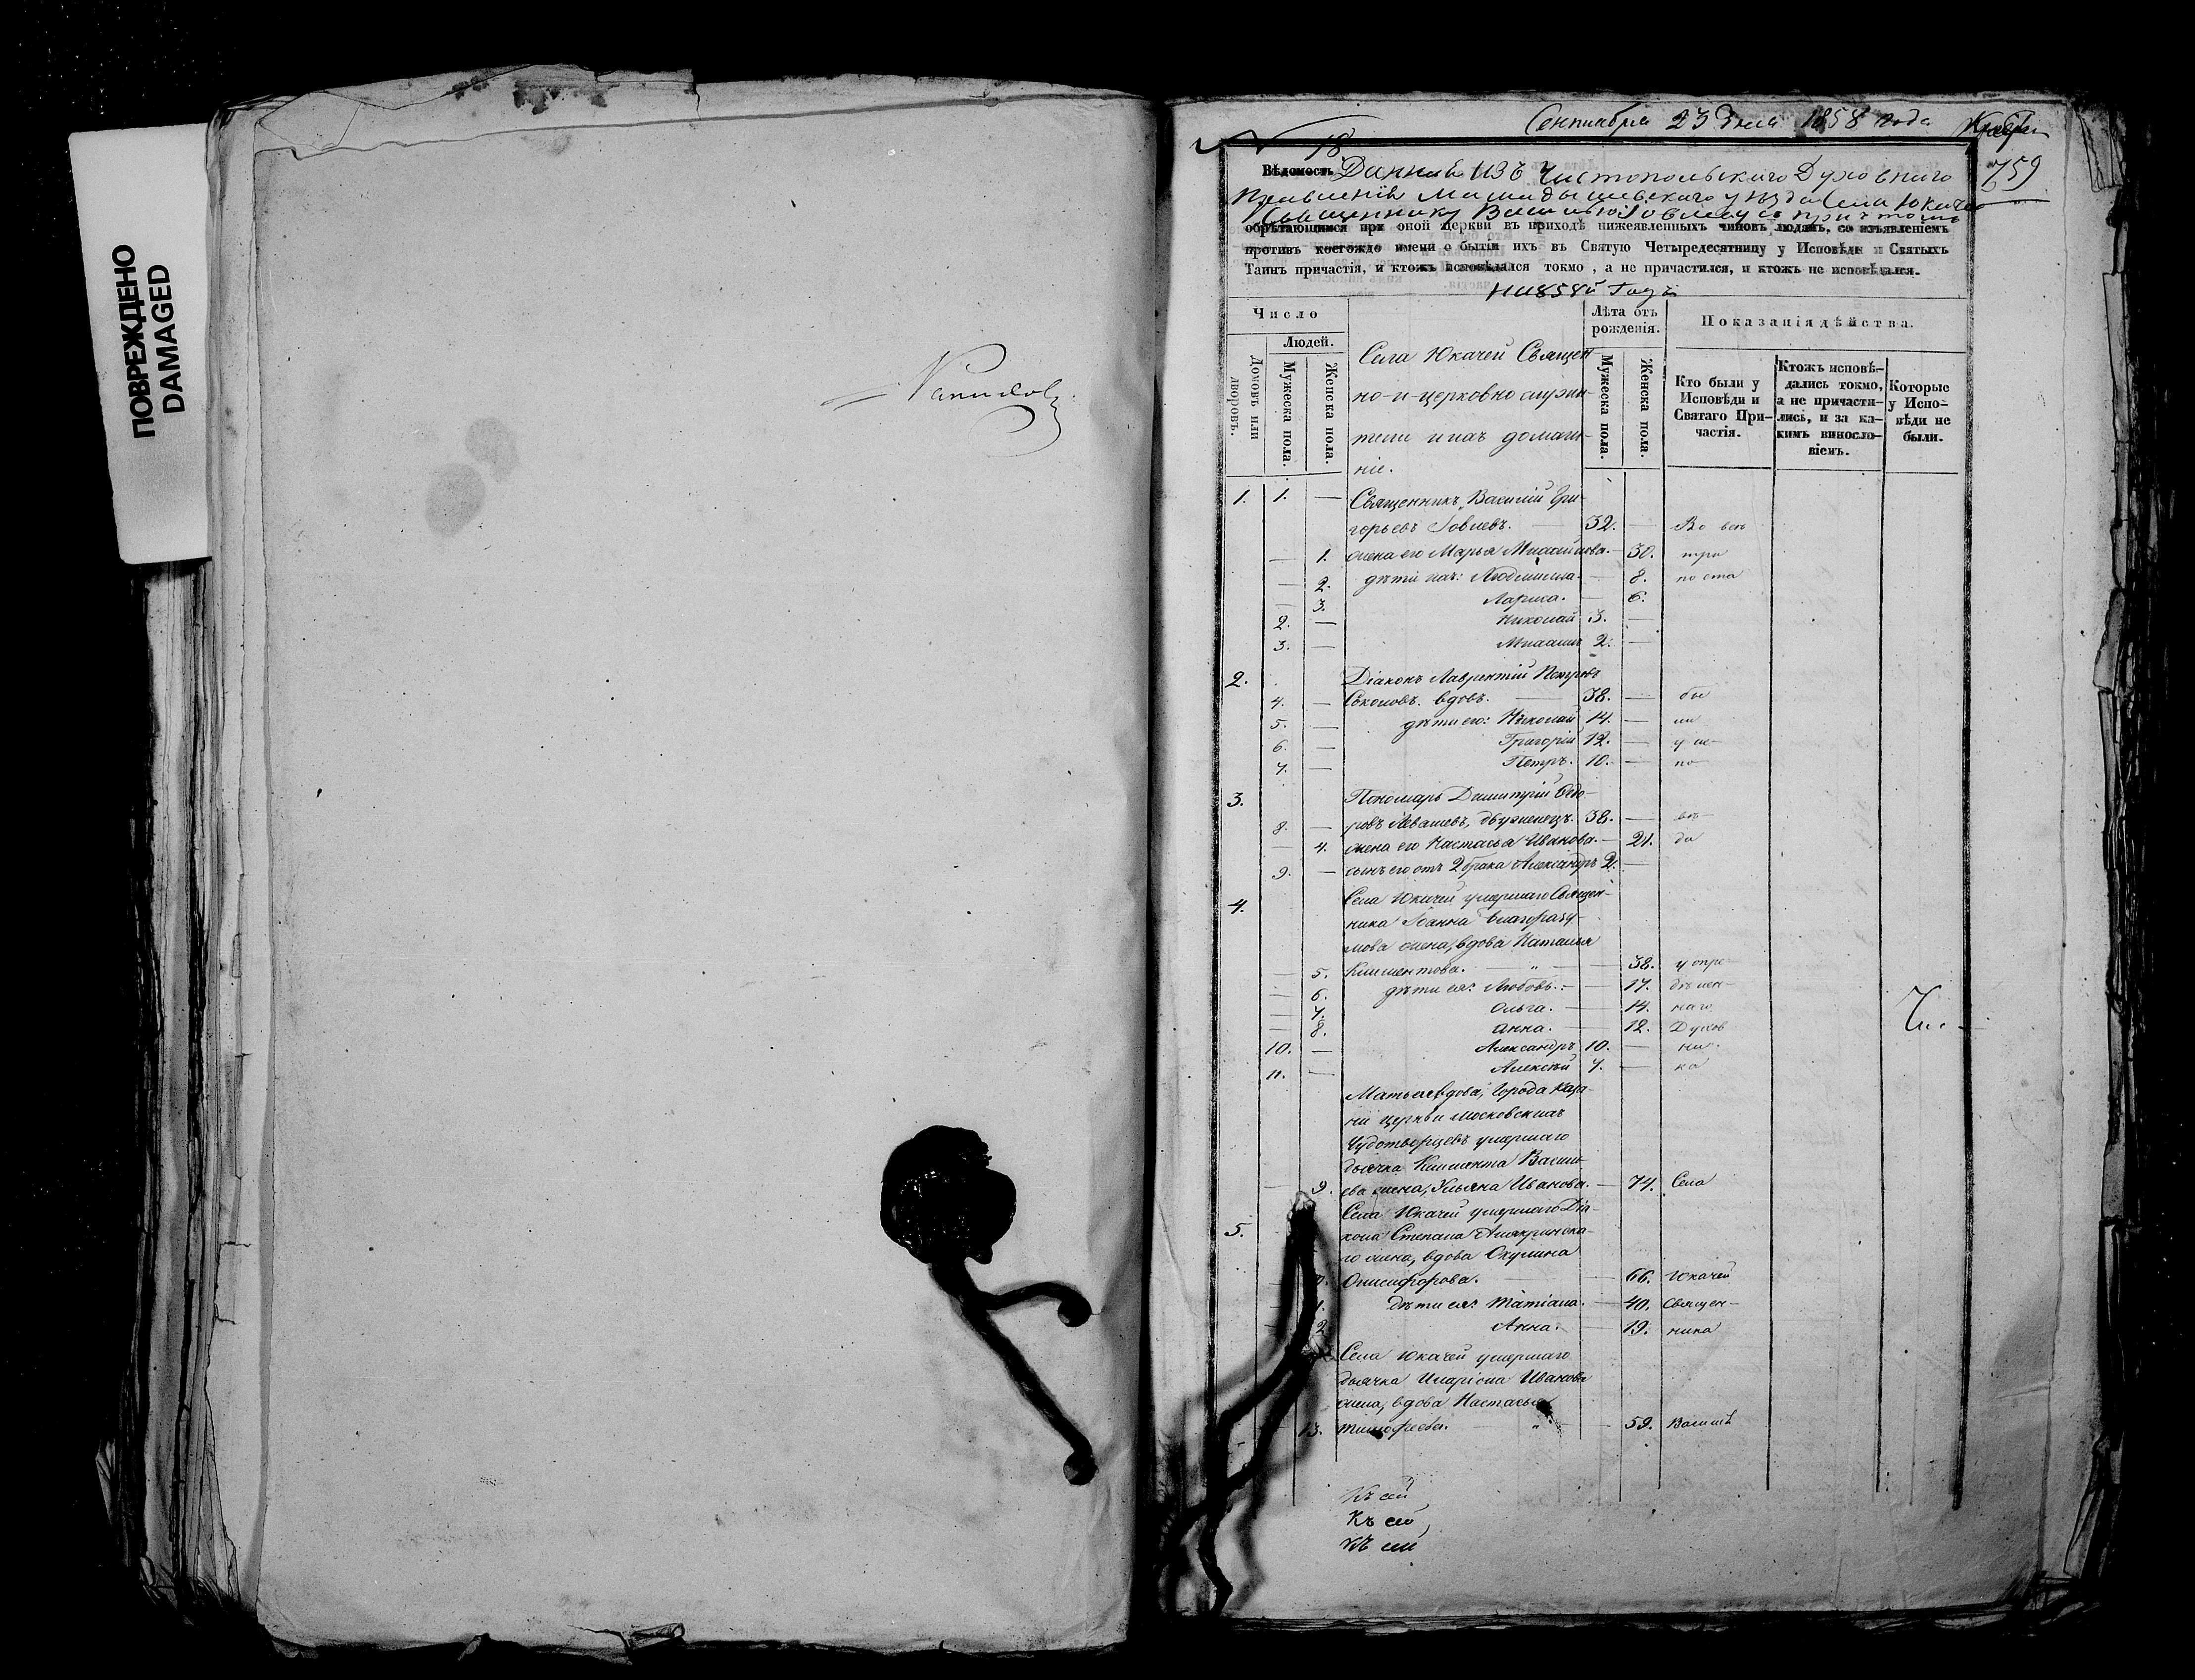 ПОВРЕЖДЕНО
DAMAGED
Сентиабря 23 дня 1858 года
18
759
Вѣдомость Данная изъ Чистопольскаго Духовнаго
Правленія Мамадышевскаго уѣзда Села Юкачей
Священнику Василью Іовлеву съ причтомъ
обрѣтающимся при оной церкви въ приходѣ нижеявленныхъ чиновъ людямъ, со изъявленіемъ
противъ коегождо имени о бытіи ихъ въ Святую Четыредесятницу у Исповѣди и Святыхъ
Таинъ причастія, и ктожъ исповѣдался токмо, а не причастился, и ктожъ не исповѣдался.
На 1858й Годъ
Число
Людей.
Домовъ или дворовъ.
Мужеска пола.
Женска пола.
Села Юкачей Священ
но-и-церковнослужи-
тели и ихъ домаш-
ніе.
Лѣта отъ рожденія.
Мужеска пола.
Женска пола.
Показанія дѣйства.
Кто были у Исповѣди и Святаго При-частія.
Ктожъ исповѣ-дались токмо, а не причасти-лись, и за ка-кимъ винослo-віемъ.
Которые у Испо-вѣди не были.
1. 1. — Священникъ, Василій Гри-
горьевъ Іовлевъ. — 32. — Во все
— 1. жена его Марья Михайлова. — 30. три
— 2. дѣти ихъ: Людмила. — 8. поста
— 3. Лариса. — 6.
2. — Николай 3. —
3. — Михаилъ 2. —
2. Діаконъ Лаврентій Петровъ
4. — Соколовъ. вдовъ. — 38. — бы
5. — дѣти его: Николай 14. — ли
6. — Григорій 12. —
7. — Петръ. 10. — по
3. Пономарь Димитрій Ѳедо-
8. — ровъ Левашевъ, двуженецъ. 38. — вѣ-
— 4. жена его Настасья Иванова. — 21. да
9. — сынъ его отъ 2 брака Александръ 2. —
4. Села Юкачей умершаго Священ-
ника Іоанна Благоразу-
мова жена, вдова Наталья
— 5. Климентова. — „ — 38. у опре-
— 6. дѣти ея: Любовь. — 17. дѣлен-
— 7. Ольга. — 14. наго
— 8. Анна. — 12. Духов
10. — Александръ 10. — ни-
11. — Алексѣй 7. — ка
Мать ея вдова, Города Каза-
ни церкви Московскихъ
Чудотворцевъ умершаго
дьячка Климента Василь
— 9. ева жена, Ульяна Иванова. — 74. Села
5. Села Юкачей умершаго Діа-
кона Степана
го жена, вдова Окулина
Онисифорова. — 66. Юкачей
— 1. дѣти ея: Татіана. — 40. Священ-
— 2. Анна. — 19. ника
Села Юкачей умершаго
дьячка Иларіона Иванова
жена, вдова Настасья
13. Тимофеева. — „ — 59. Василь
Къ сей
Къ сей
Къ сей